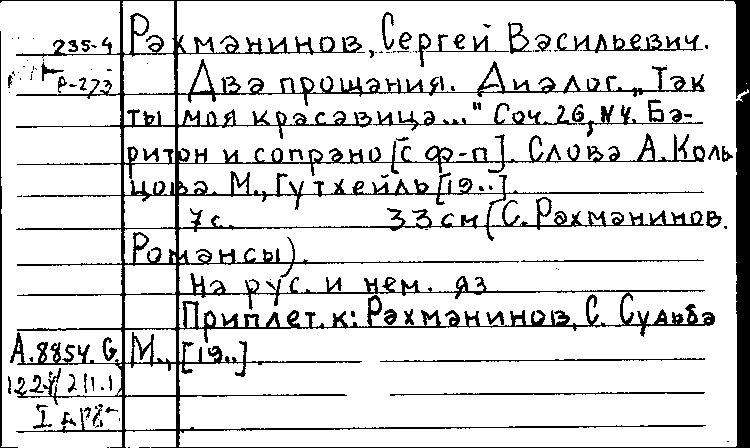 235-4 Рахманинов, Сергей Васильевич.
Р-273 Два прощания. Диалог. „Так
ты моя красавица..." Соч. 26, №4. Ба-
ритон и сопрано [с ф-п]. Слова А. Коль
цова. М., Гутхейль [19..].
7с. 33 см (С. Рахманинов.
Романсы).
На рус. и нем. яз
Приплет. к: Рахманинов, С. Судьба
А.8854.G. М., [19..].
I